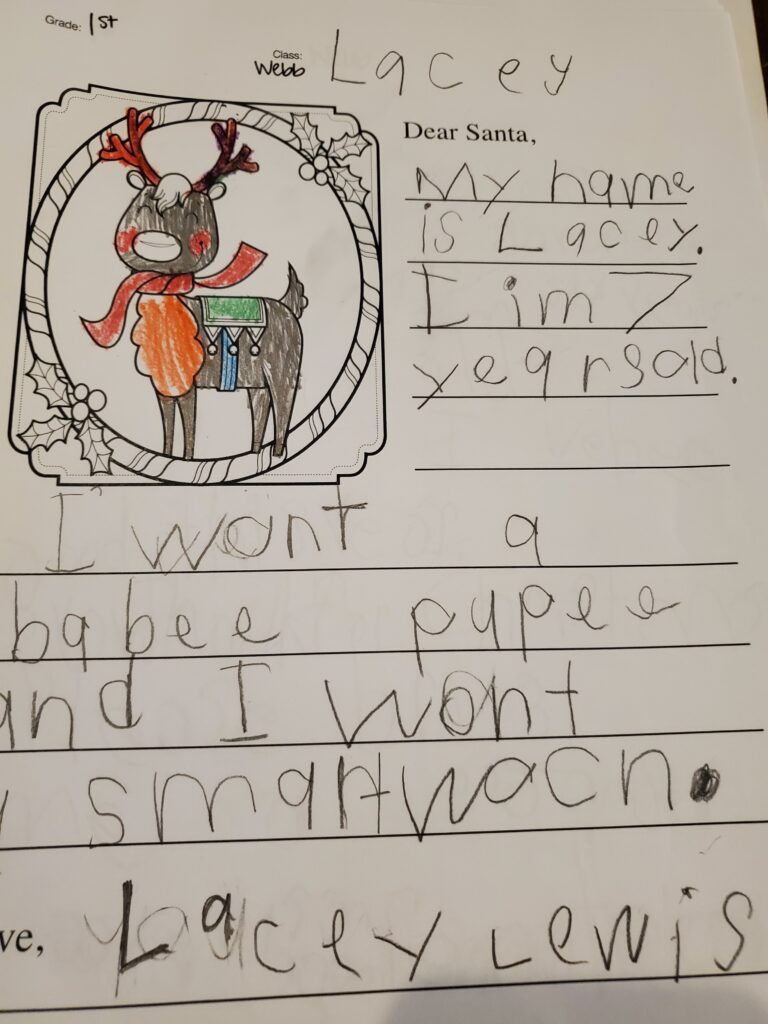 Grade: 1st
Class: Webb
Lacey
Dear Santa,
My name
is Lacey.
I im 7
yearsold.
I wont a
babee pupee
and I wont
smartwacn.
ve, Lacey Lewis